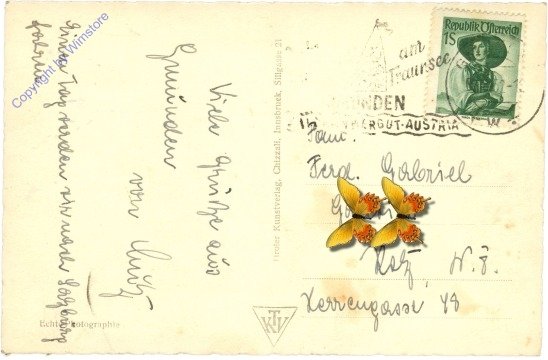 Viele Grüße aus
Gmunden
von
Einen Tag werden wir nach Salzburg
fahren
Copyright by Wimstore
Echte Photographie
Tiroler Kunstverlag, Chizzali, Innsbruck, Sillgasse 21
KTV
Republik Österreich
1S
am
Traunsee
GMUNDEN
GUT-AUSTRIA
Fam.
Ferd. Gabriel
Retz, N.Ö.
Herrengasse 48